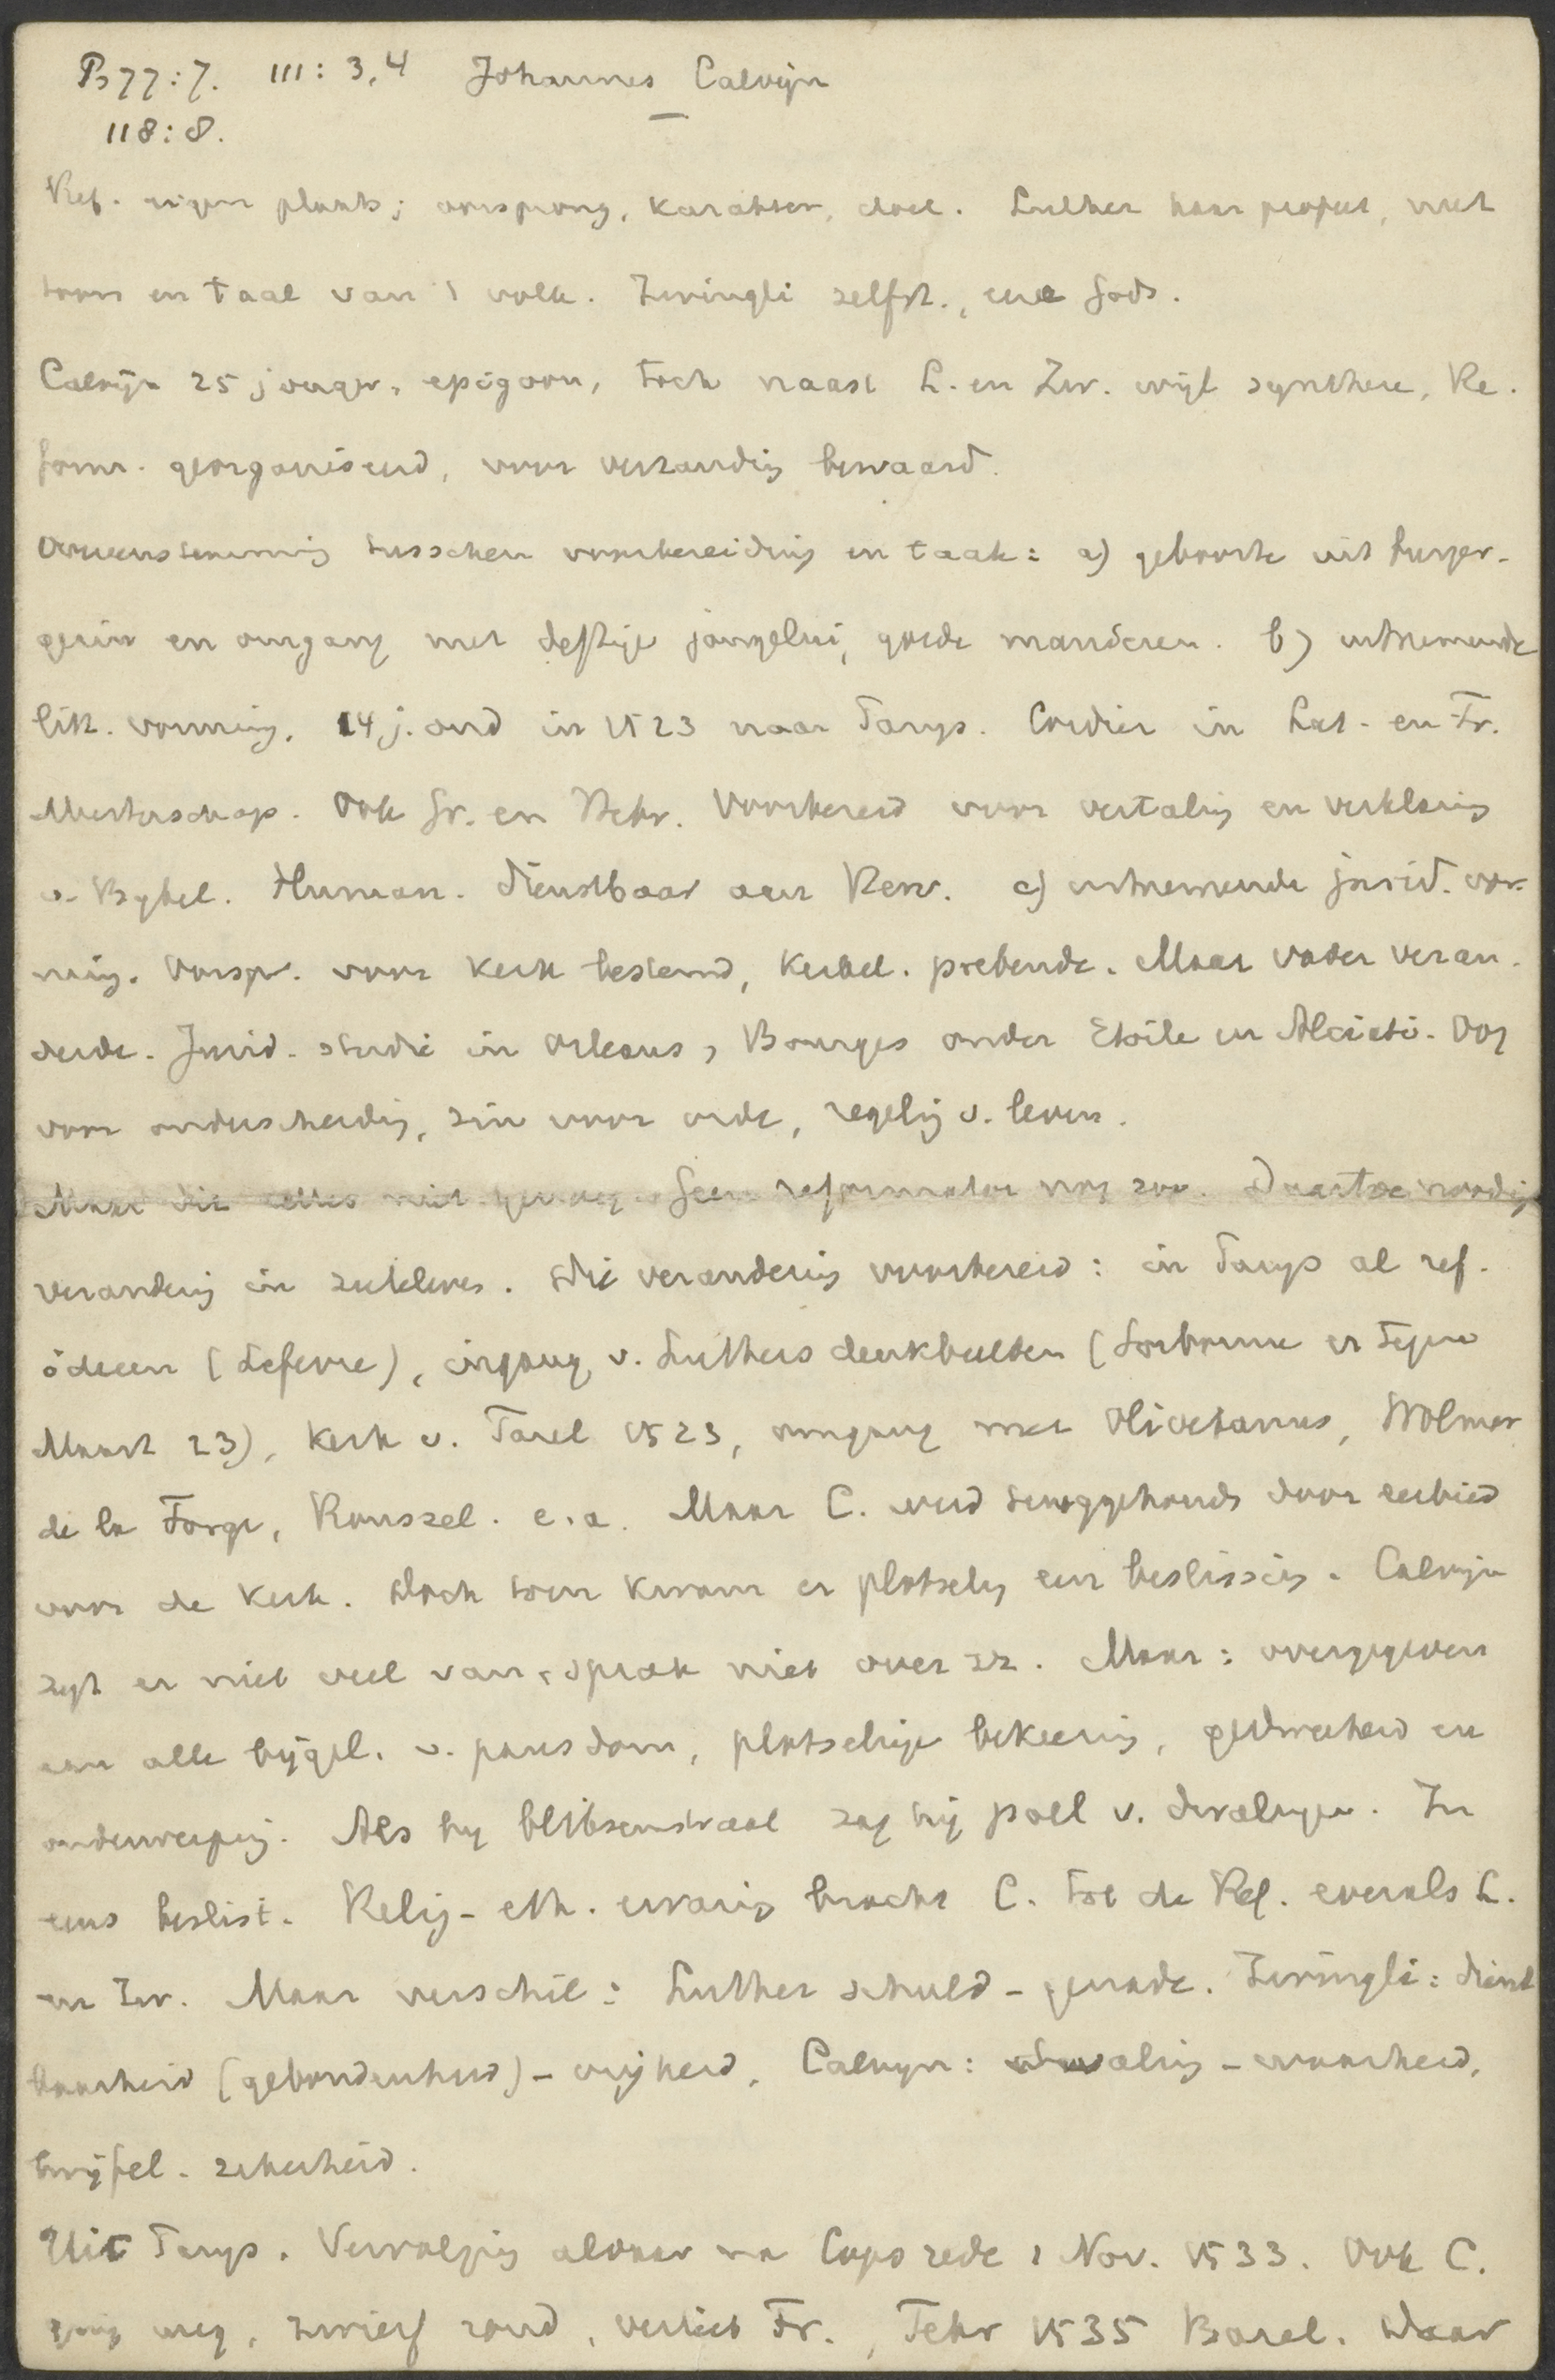 Ps 77:7. 111:3,4 Johannes Calvijn
118:8.
Ref. eigen plaats; oorsprong, karakter, doel. Luther haar profeet, met
toon en taal van 't volk. Zwingli zelfst., eere Gods.
Calvijn 25 j jonger, epigoon, toch naast L. en Zw. wijl synthese, Re-
form. georganiseerd, voor verzanding bewaard.
Overeenstemming tusschen voorbereiding en taak: a) geboorte uit burger-
gezin en omgang met deftige jongelui, goede manieren. b) uitnemende
litt. vorming. 14 j. oud in 1523 naar Parijs. Cordier in Lat. en Fr.
Meesterschap. Ook Gr. en Hebr. Voorbereid voor vertaling en verklaring
v. Bijbel. Human. dienstbaar aan Herv. c) uitnemende jurid. vor-
ming. Oorspr. voor kerk bestemd, kerkel. prebende. Maar vader veran-
derde. Jurid. studie in Orleans, Bourges onder Etoile en Alciati. Oog
voor onderscheiding, zin voor orde, regeling v. leven.
Maar dit alles niet genoeg. Geen reformator nog zoo. Daartoe noodig
verandering in zieleleven. Die verandering voorbereid: in Parijs al ref.
ideeen (Lefevre), ingang v. Luthers denkbeelden (Sorbonne er tegen
Maart 23), kerk v. Farel 1523, omgang met Olivetanus, Wolmar
de la Forge, Roussel. e.a. Maar C. werd teruggehouden door eerbied
voor de kerk. Doch toen kwam er plotseling een beslissing. Calvijn
zegt er niet veel van, sprak niet over zz. Maar: overgegeven
aan alle bijgel. v. pausdom, plotselinge bekeering, gedweeheid en
onderwerping. Als bij bliksemstraal zag hij poel v. dwalingen. In
eens beslist. Relig-eth. ervaring bracht C. tot de Ref. evenals L.
en Zw. Maar verschil: Luther schuld - genade. Zwingli: dienst
baarheid (gebondenheid) - vrijheid. Calvijn: dwaling - waarheid,
twijfel - zekerheid.
Uit Parijs. Vervolging aldaar na Cops rede 1 Nov. 1533. Ook C.
ging weg, zwierf rond, verliet Fr., Febr 1535 Bazel. Daar